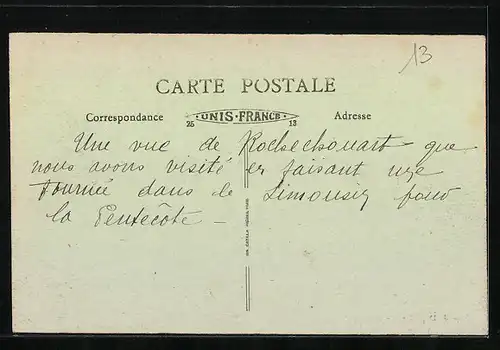 13
CARTE POSTALE
Correspondance
25 UNIS-FRANCE 13
Adresse
Une vue de Rochechouart que
nous avons visité en faisant une
tournée dans le Limousin pour
la Pentecôte -